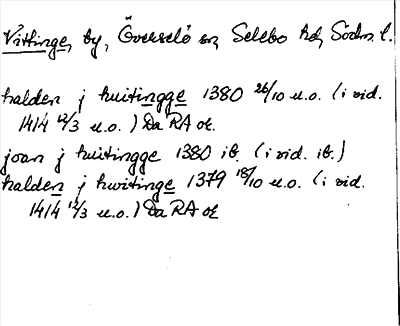 Vittinge, by, Överselö sn, Selebo hd, Södm. l.
halden j huitingge 1380 26/10 u.o. (i vid.
1414 12/3 u.o.) Da RA or.
joan j huitingge 1380 ib. (i vid. ib.)
halden j hwitinge 1379 18/10 u.o. (i vid.
1414 12/3 u.o.) Da RA or